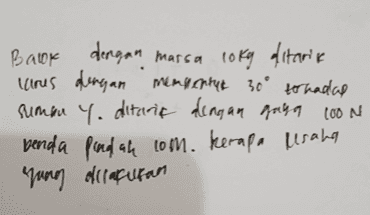 Balok dengan massa 10kg ditarik
lurus dengan membentuk 30° terhadap
sumbu y. ditarik dengan gaya 100 N
benda pindah 10M. berapa usaha
yang dilakukan